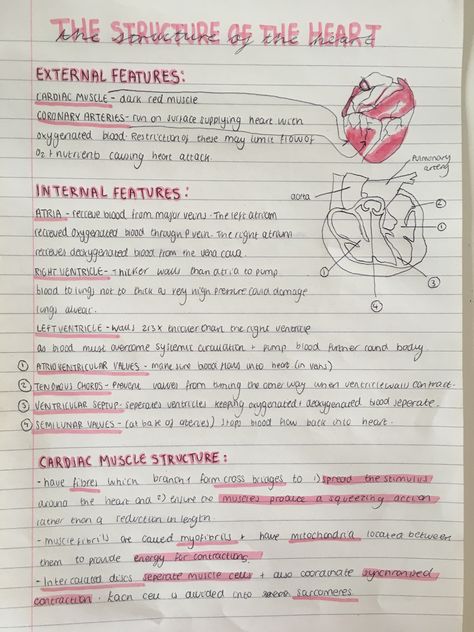 THE STRUCTURE OF THE HEART
the structure of the heart
EXTERNAL FEATURES:
CARDIAC MUSCLE - dark red muscle
CORONARY ARTERIES - run on surface supplying heart with
oxygenated blood. Restriction of these may limit flow of
O2 + nutrients causing heart attack.
Pulmonary
artery
aorta
INTERNAL FEATURES:
ATRIA - recieve blood from major veins. The left atrium
recieved oxygenated blood through P vein. The right atrium
recieves deoxygenated blood from the vena cava.
RIGHT VENTRICLE - thicker walls than atria to pump
blood to lungs not to thick as very high pressure could damage
lungs alveoli.
LEFT VENTRICLE - walls 2/3 x thicker than the right ventricle
as blood must overcome systemic circulation + pump blood further round body.
① ATRIOVENTRICULAR VALVES - make sure blood flows into heart (in vans)
② TENDONOUS CHORDS - prevent valves from turning the other way when ventricle walls contract.
③ VENTRICULAR SEPTUP - seperates ventricles keeping oxygenated + deoxygenated blood seperate.
④ SEMILUNAR VALVES - (at base of ateries) stops blood flow back into heart.
② ① ① ③ ④
CARDIAC MUSCLE STRUCTURE:
- have fibres which branch + form cross bridges to 1) spread the stimulus
around the heart and 2) ensure the muscles produce a squeezing action
rather than a reduction in length.
- muscle fibrils are called myofibrils + have mitochondria located between
them to provide energy for contractions.
- Intercalated discs seperate muscle cells + also coordinate synchronised
contraction. Each cell is divided into sarcomeres